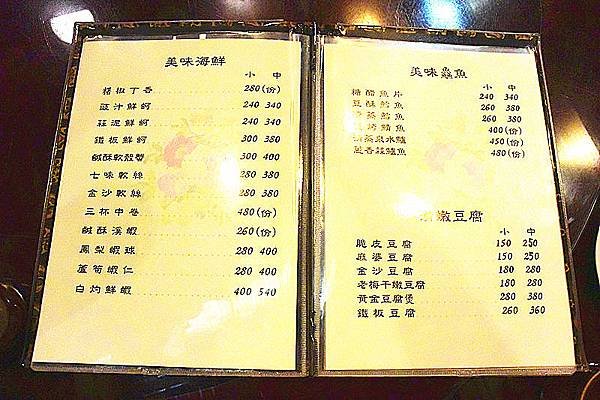 美味海鮮
小 中
椒丁香 280(份)
豉汁鮮蚵 240 340
蒜泥鮮蚵 240 340
鐵板鮮蚵 300 380
鹹酥軟殼蟹 300 400
七味軟絲 280 380
金沙軟絲 280 380
三杯中卷 480(份)
鹹酥溪蝦 260(份)
鳳梨蝦球 280 400
蘆筍蝦仁 280 400
白灼鮮蝦 400 540
美味鱻魚
小 中
糖醋魚片 240 340
豆酥鱈魚 260 380
蒸鱈魚 260 380
烤鯖魚 400(份)
蒸泉水鱸 450(份)
蔥香蒜鱸魚 480(份)
嫩豆腐
小 中
脆皮豆腐 150 250
麻婆豆腐 150 250
金沙豆腐 180 280
老梅干嫩豆腐 180 280
黃金豆腐煲 280 380
鐵板豆腐 260 360